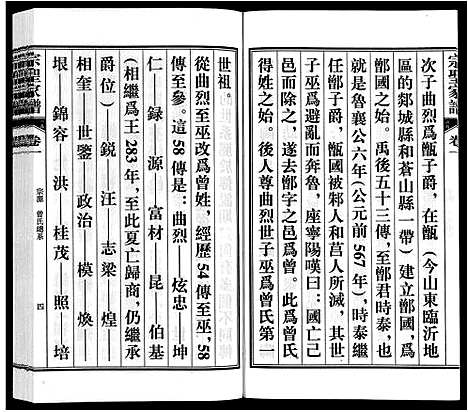 宗聖家譜
卷一
次子曲烈爲鄫子爵，在甑（今山東臨沂地
區的郯城縣和蒼山縣一帶）建立鄫國，爲
鄫國之始。禹後五十三傳，至鄫君時泰，也
就是魯襄公六年（公元前 567 年），時泰
任鄫子爵，甑國被邾人和莒人所滅，其世
子巫爲避亂而奔魯，座寧陽嘆曰：國亡己
邑而除之，遂去鄫字之邑爲曾。此爲曾氏
得姓之始。後人尊曲烈世子巫爲曾氏第一
世祖。
從曲烈至巫改爲曾姓，經歷 54 傳至巫，58
傳至參。這 58 傳是：——炫忠——坤
仁——録 源——富材 昆——伯基
（相繼爲王 283 年，至此夏亡歸商，仍繼承
爵位）——鋭 汪——志梁——煌——
相奎——世鑒——政治——模——焕——
垠——錦容——洪 桂茂——照——培
宗聖家譜
卷一
宗源 曾氏總系
四